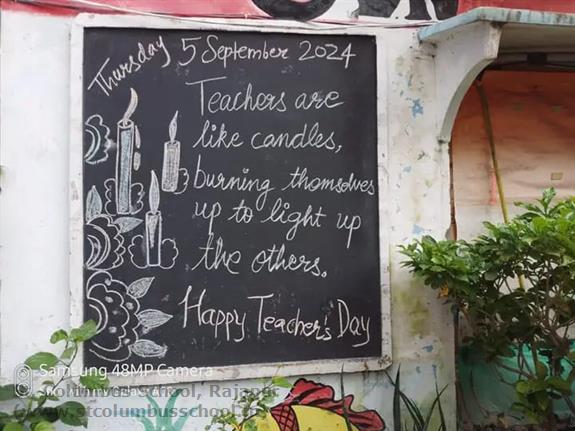 Thursday 5 September 2024
Teachers are
like candles,
burning themselves
up to light up
the others.
Happy Teacher's Day
Samsung 48MP Camera
School, Rajapur